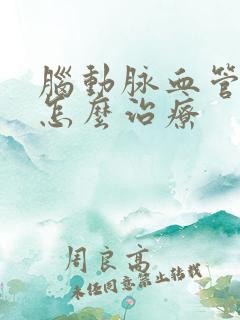 腦動脈血管
怎麼治療
周良高
未经同意禁止转载